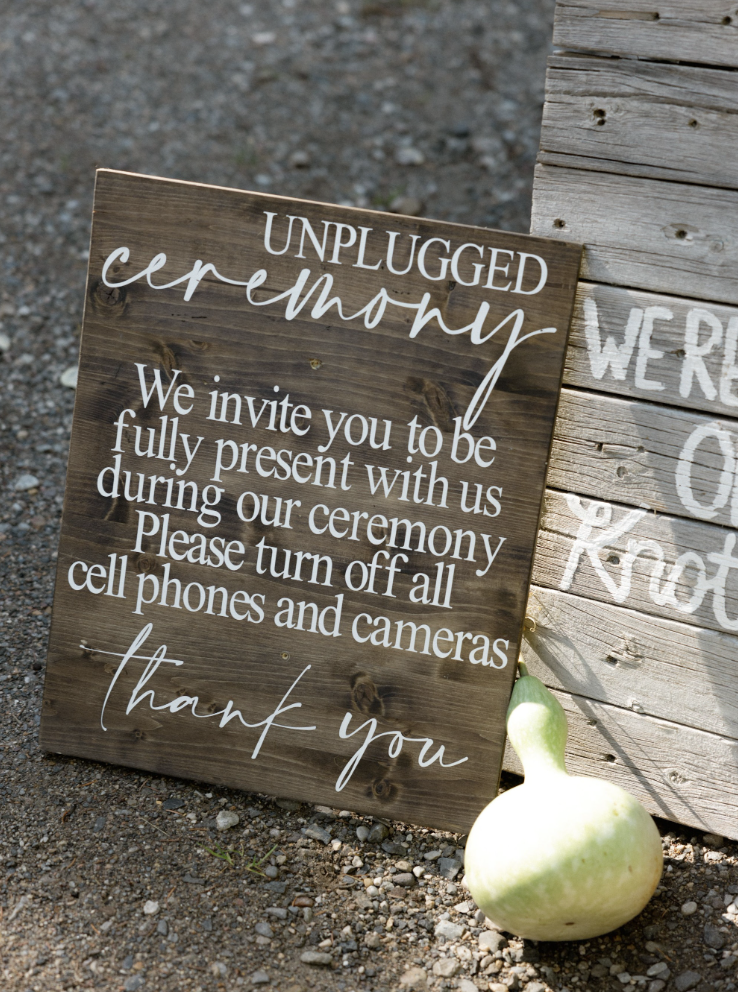 UNPLUGGED
ceremony
We invite you to be
fully present with us
during our ceremony
Please turn off all
cell phones and cameras
thank you
WE'RE
Knot